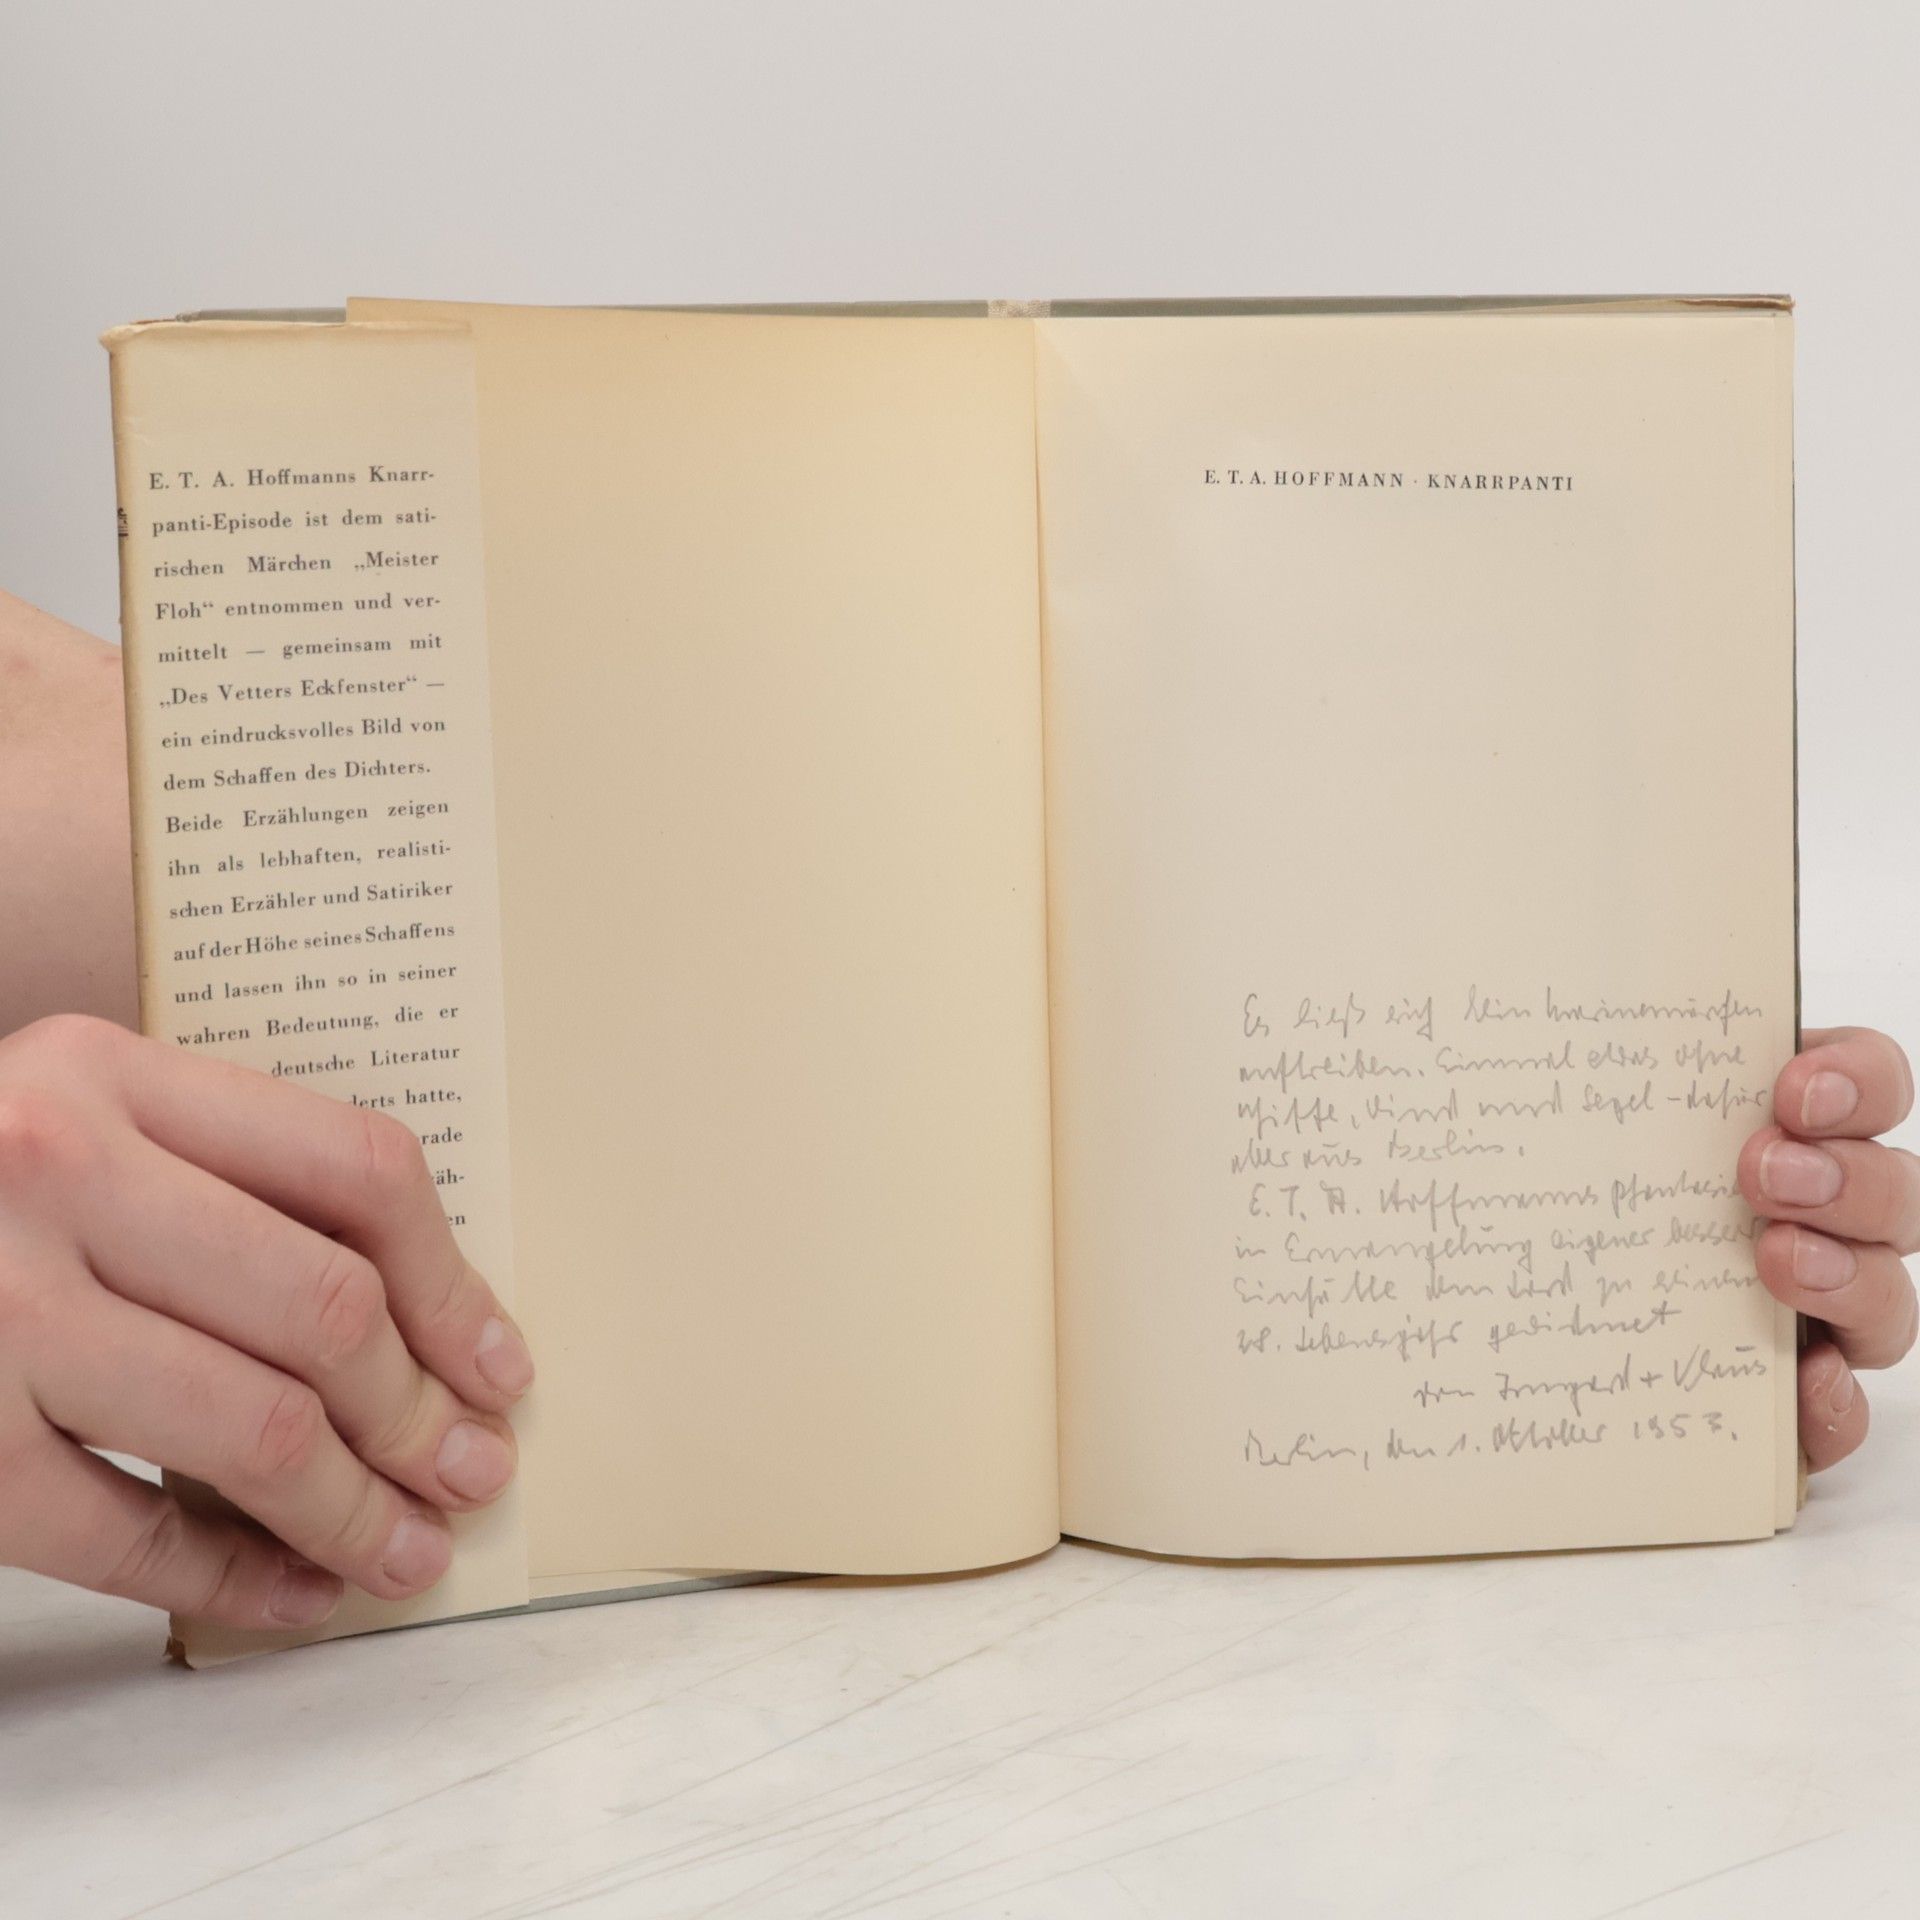 E. T. A. Hoffmanns Knarr-
panti-Episode ist dem sati-
rischen Märchen „Meister
Floh“ entnommen und ver-
mittelt — gemeinsam mit
„Des Vetters Eckfenster“ —
ein eindrucksvolles Bild von
dem Schaffen des Dichters.
Beide Erzählungen zeigen
ihn als lebhaften, realisti-
schen Erzähler und Satiriker
auf der Höhe seines Schaffens
und lassen ihn so in seiner
wahren Bedeutung, die er
deutsche Literatur
derts hatte,
rade
äh-
en
E. T. A. HOFFMANN · KNARRPANTI
Es ließ sich kein
auftreiben. Einmal etwas ohne
Schiffe, Wind und Segel - dafür
aber aus Berlin.
E. T. A. Hoffmanns Phantasie
in Ermangelung eigener besserer
Einfälle dem Lord zu seinem
28. Lebensjahr gewidmet
von Irmgard + Klaus
Berlin, den 1. Oktober 1953.